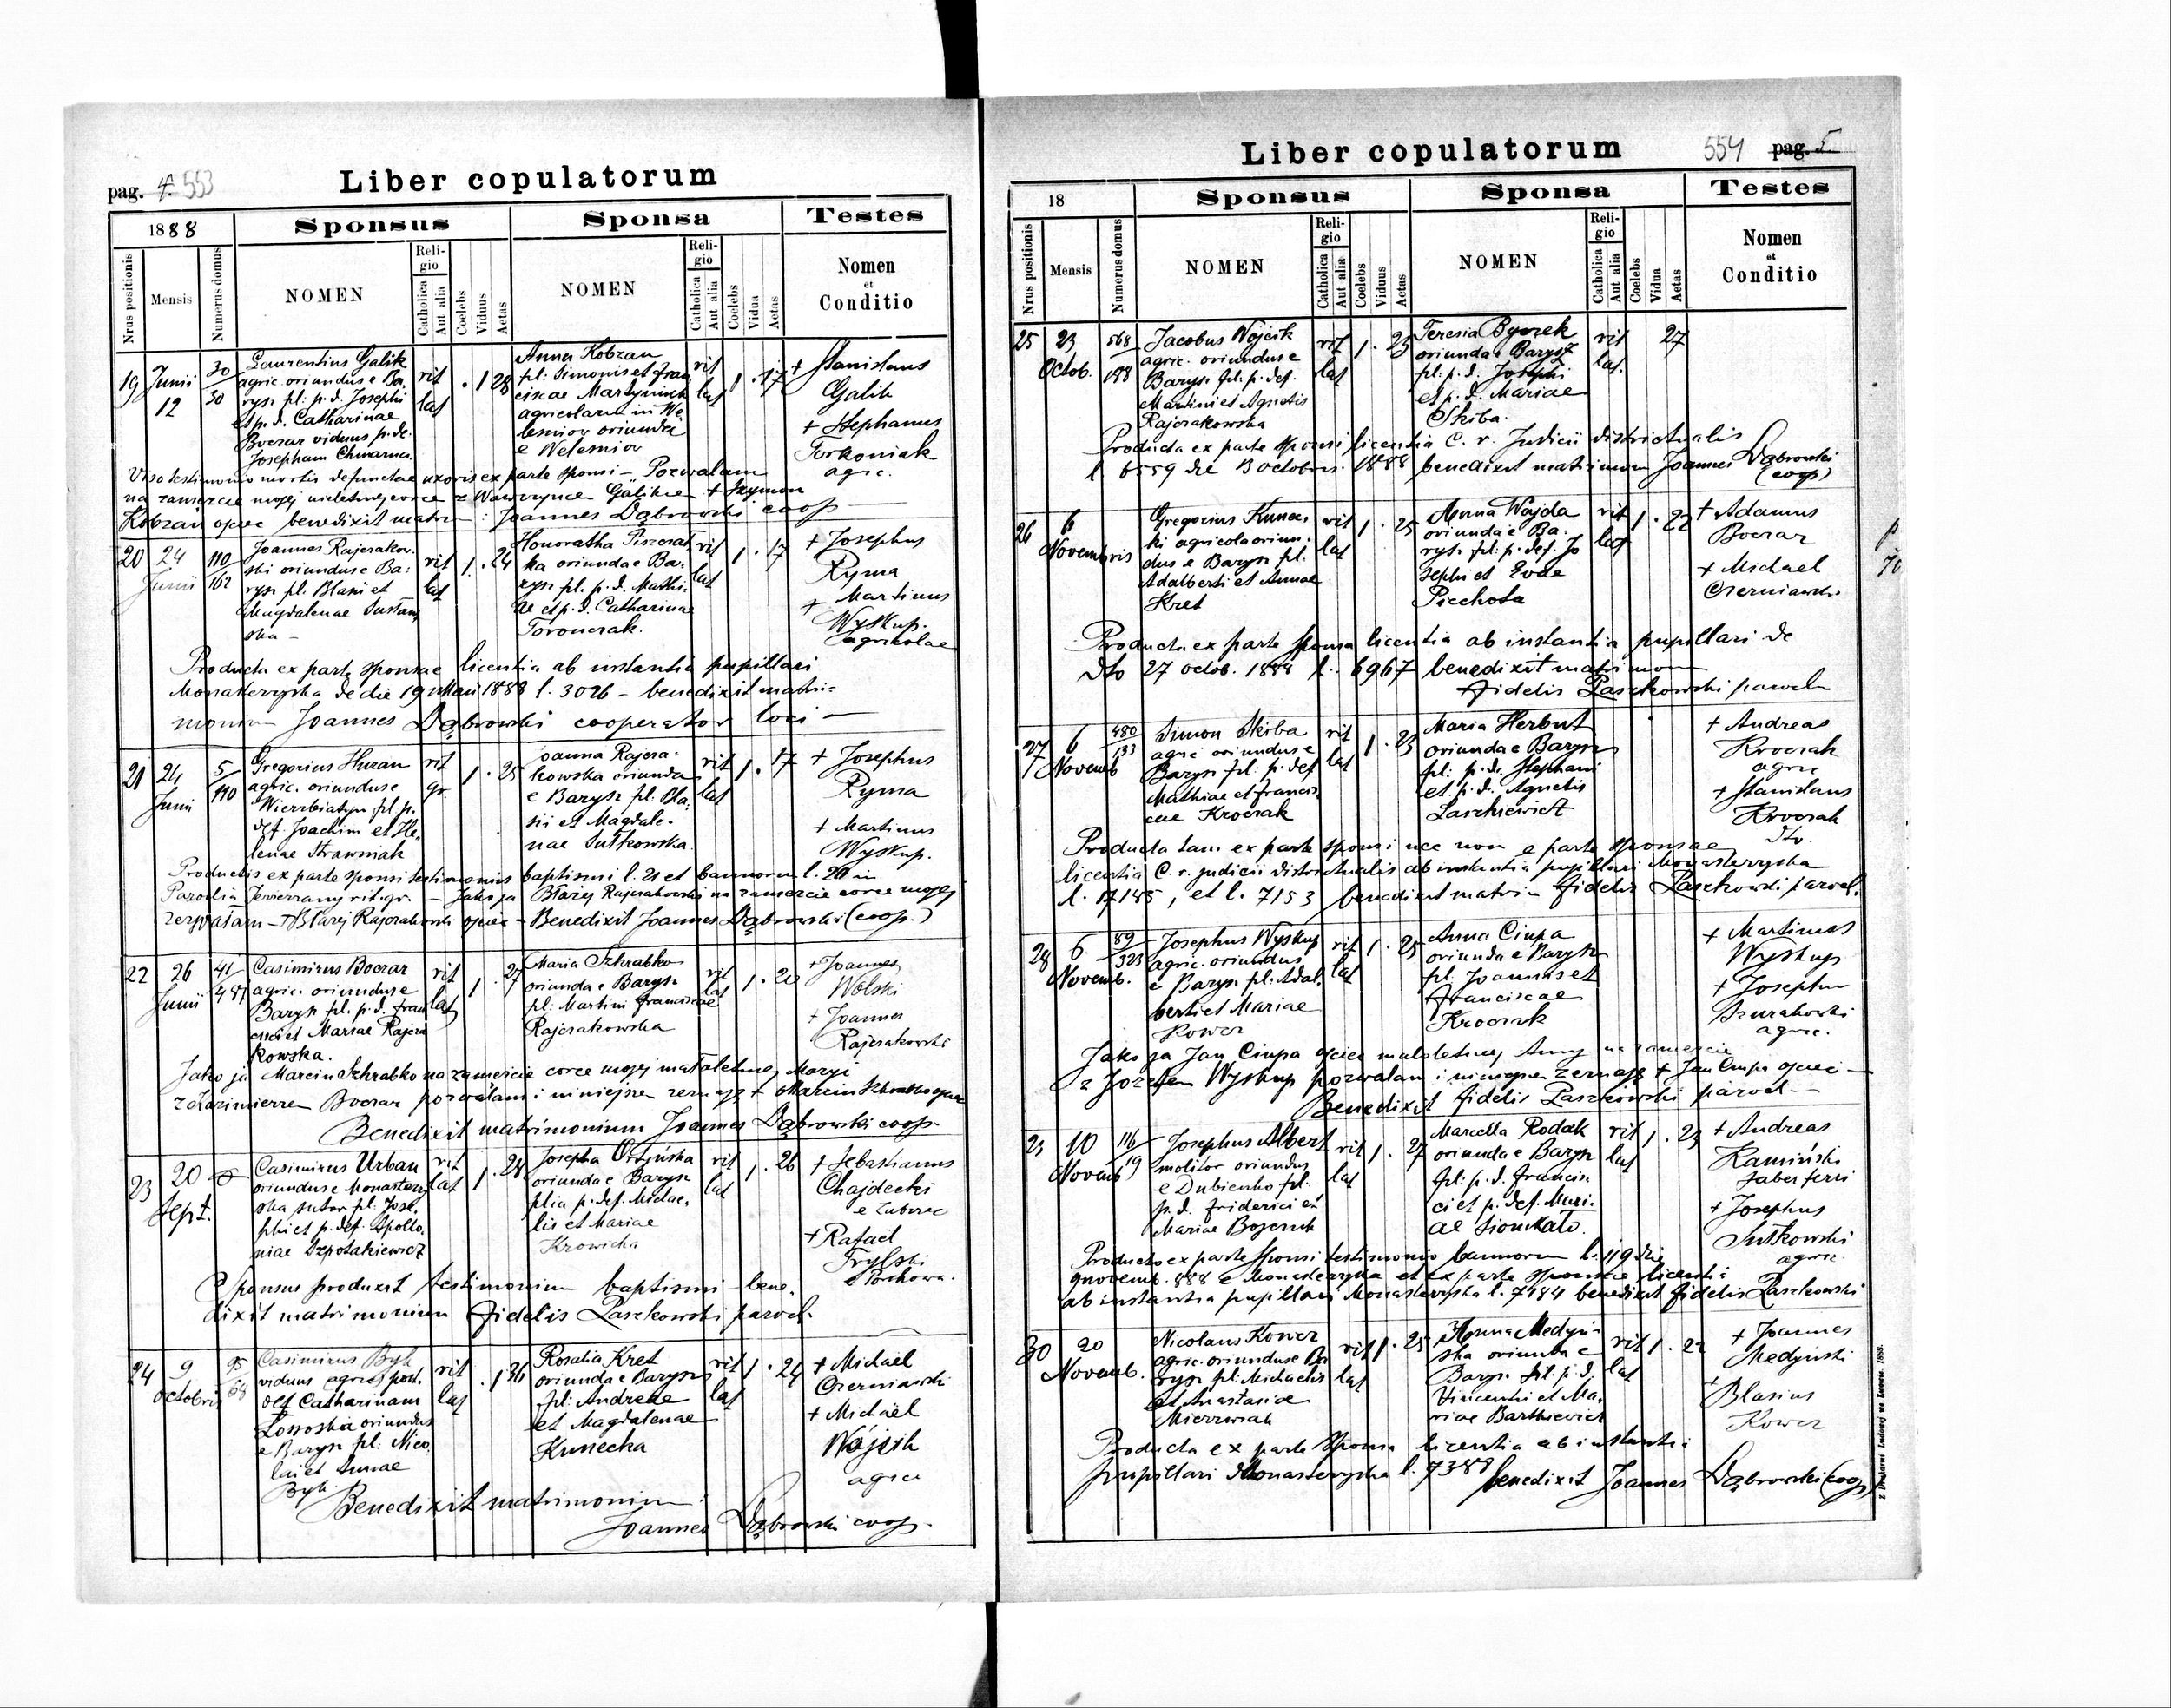 pag. 4. 553
Liber copulatorum
1888
Sponsus
Sponsa
Testes
Nrus positionis
Mensis
Numerus domus
NOMEN
Religio
Catholica
Aut alia
Coelebs
Viduus
Aetas
NOMEN
Religio
Catholica
Aut alia
Coelebs
Vidua
Aetas
Nomen
et
Conditio
19 Junii 12
30
30
Laurentius Galik
agric. oriundus e Ba-
rysz fil: p. d. Josephi
et p. d. Catharinae
Boczar viduus p. de.
Josepham
rit lat . 1 28
Anna Kobzan
fil: Simonis et Fran
ciscae Martyniuk
agricolarum in We
lesniov oriunda
e Welesniov
rit lat 1 . 17
+ Stanislaus
Galik
+ Stephanus
Torkoniak
agric.
Viso testimonio mortis defunctae uxoris ex parte sponsi – Pozwalam
na zamezcie mojej nieletniej corce z Wawrzyncem Galikiem + Szymon
Kobzan ojciec benedixit matrim: Joannes Dąbrowski coop
20 24 Junii
110
162
Joannes Rajczakow
ski oriundus e Ba:
rysz fil. Blasii et
Magdalenae
ska –
rit lat 1 . 24
Honoratha
ka oriunda e Ba:
rysz fil. p. d. Mathi:
ae et p. d. Catharinae
Toronczak.
rit lat 1 . 17
+ Josephus
Ryma
+ Martinus
Wyskup.
agricolae
Producta ex parte sponsae licentia ab instantia pupillari
Monasterzyska de die 19 Maii 1888 l. 3026 – benedixit matri-
monium Joannes Dąbrowski cooperator loci –
21 24 Junii
5
110
Gregorius Huzan
agric. oriundus e
Wierzbiatyn fil. p.
def. Joachim et He.
lenae Strawniak
rit gr. 1 . 25
Joanna Rajcza-
kowska oriunda
e Barysz fil: Bla:
sii et Magdale-
nae Sutkowska.
rit lat 1 . 17
+ Josephus
Ryma
+ Martinus
Wyskup.
Productis ex parte sponsi testimoniis baptismi l. 21 et bannorum l. 20 in
Parochia rit. gr. – Jako ja Błażej Rajczakowski na zamezcie corce mojej
zezwalam – + Błażej Rajczakowski ojciec – Benedixit Joannes Dąbrowski (coop.)
22 26 Junii
41
481
Casimirus Boczar
agric. oriundus e
Barysz fil. p. d. Fran
cisci et Mariae Rajcza
kowska.
rit lat 1 . 27
Maria Szkrabko
oriunda e Barysz
fil. Martini Franciscae
Rajczakowska
rit lat 1 . 20
+ Joannes
Wolski
+ Joannes
Rajczakowski
Jako ja Marcin Szkrabko na zamezcie corce mojej małoletniej Maryi
z Kazimierzem Boczar pozwalam i niniejsze zeznaję + Marcin Szkrabko ojciec
Benedixit matrimonium Joannes Dąbrowski coop.
23 20 Sept.
Casimirus Urban
oriundus e Monaster
ska sutor fil. Jose.
phi et p. def. Apollo.
niae Szpotakiewicz
rit lat 1 . 28
Josepha
oriunda e Barysz
filia p. def. Michae-
lis et Mariae
Krowicka
rit lat 1 . 26
+ Sebastianus
Chajdecki
e
+ Rafael
Trylski
e
Sponsus produxit testimonium baptismi – bene.
dixit matrimonium Fidelis Paszkowski paroch.
24 9 Octobris
95
Casimirus Byk
viduus agric. post.
def Catharinam
oriundus
e Barysz fil: Nico.
lai et Annae
Byk
rit lat . 1 36
Rosalia Kret
oriunda e Barysz
fil: Andreae
et Magdalenae
Kunecka
rit lat 1 . 24
+ Michael
Czerniawski
+ Michaël
Wojcik
agric
Benedixit matrimonium:
Joannes Dąbrowski coop.
Liber copulatorum
554 pag. 5.
18
Sponsus
Sponsa
Testes
Nrus positionis
Mensis
Numerus domus
NOMEN
Religio
Catholica
Aut alia
Coelebs
Viduus
Aetas
NOMEN
Religio
Catholica
Aut alia
Coelebs
Vidua
Aetas
Nomen
et
Conditio
25 23 Octob.
568
198
Jacobus Wojcik
agric. oriundus e
Barysz fil. p. def.
Martini et Agnetis
Rajczakowska
rit lat 1 . 23
Teresia Byczek
oriunda e Barysz
fil: p. d. Josephi
et p. d. Mariae
Skiba.
rit lat. 27
Producta ex parte sponsi licentia C. r. Judicii districtualis
l. 6559 die 13 octobris 1888 benedixit matrimon Joannes Dąbrowski
(coop)
26 6 Novembris
Gregorius Kunec.
ki agricola oriun.
dus e Barysz fil.
Adalberti et Annae
Kret
rit lat 1 . 25
Anna Wajda
oriunda e Ba:
rysz. fil: p. def. Jo
sephi et Evae
Piechota
rit lat 1 . 22
+ Adamus
Boczar
+ Michael
Czerniawski
Producta ex parte Sponsa licentia ab instantia pupillari de
dto 27 octob. 1888 l. 6967 benedixit matrimon
Fidelis Paszkowski paroch
27 6 Novemb
480
133
Simon Skiba
agric oriundus e
Barysz fil. p. def
Mathiae et Francis.
cae Kroczak
rit lat 1 . 23
Maria Herbut
oriunda e Barysz
fil: p. d. Stephani
et p. d. Agnetis
Laszkiewicz
+ Andreas
Kroczak
agric
+ Stanislaus
Kroczak
dto.
Producta tam ex parte sponsi nec non e parte sponsae
licentia C. r. judicii districtualis ab instantia pupillari Monasterzyska
l. 17185, et l. 7153 benedixit matrim Fidelis Paszkowski paroch.
28 6 Novemb.
89
323
Josephus Wyskup
agric. oriundus
e Barysz fil. Adal.
berti et Mariae
Kowcz
rit lat 1 . 25
Anna Ciupa
oriunda e Barysz
fil. Joannis et
Franciscae
Kroczak
+ Martinus
Wyskup
+ Josephus
Szurakowski
agric.
Jako ja Jan Ciupa ojciec małoletniej Anny na zamezcie
z Jozefem Wyskup pozwalam i niniejsze zeznaję + Jan Ciupa ojciec –
Benedixit Fidelis Paszkowski paroch –
29 10 Novemb
116
19
Josephus Albert
molitor oriundus
e Dubienko fil.
p. d. Friderici et
Mariae
rit lat 1 . 27
Marcella Rodak
oriunda e Barysz
fil: p. d. Francis:
ci et p. def. Mari-
ae
rit lat 1 . 23
+ Andreas
Kamiński
faber ferri
+ Josephus
Sutkowski
agric.
Producto ex parte Sponsi testimonio bannorum l. 119 die
9 novemb. 888 e Monasterzyska et ex parte sponsae licentia
ab instantia pupillari Monasterzyska l. 7184 benedixit Fidelis Paszkowski
30 20 Novemb.
Nicolaus Kowcz
agric. oriundus e Ba
rysz fil: Michaelis
et Anastasiae
Mierzwiak
rit lat 1 . 25
Anna Medyń
ska oriunda e
Barysz fil. p. d.
Vincentii et Ma.
riae Bartkiewicz
rit lat 1 . 22
+ Joannes
Medyński
+ Blasius
Kowcz
Producta ex parte Sponsa licentia ab instantia
pupillari Monasterzyska l. 7388 benedixit Joannes Dąbrowski (coop)
Z Drukarni Ludowej we Lwowie. 1888.